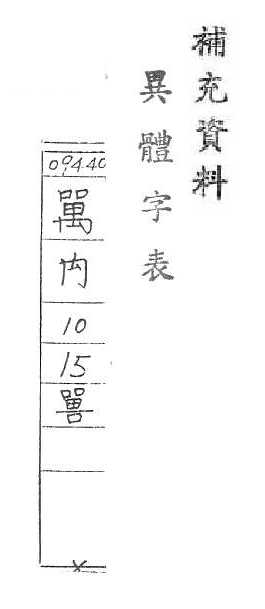 補充資料
異體字表
09440
禸
10
15
嘼